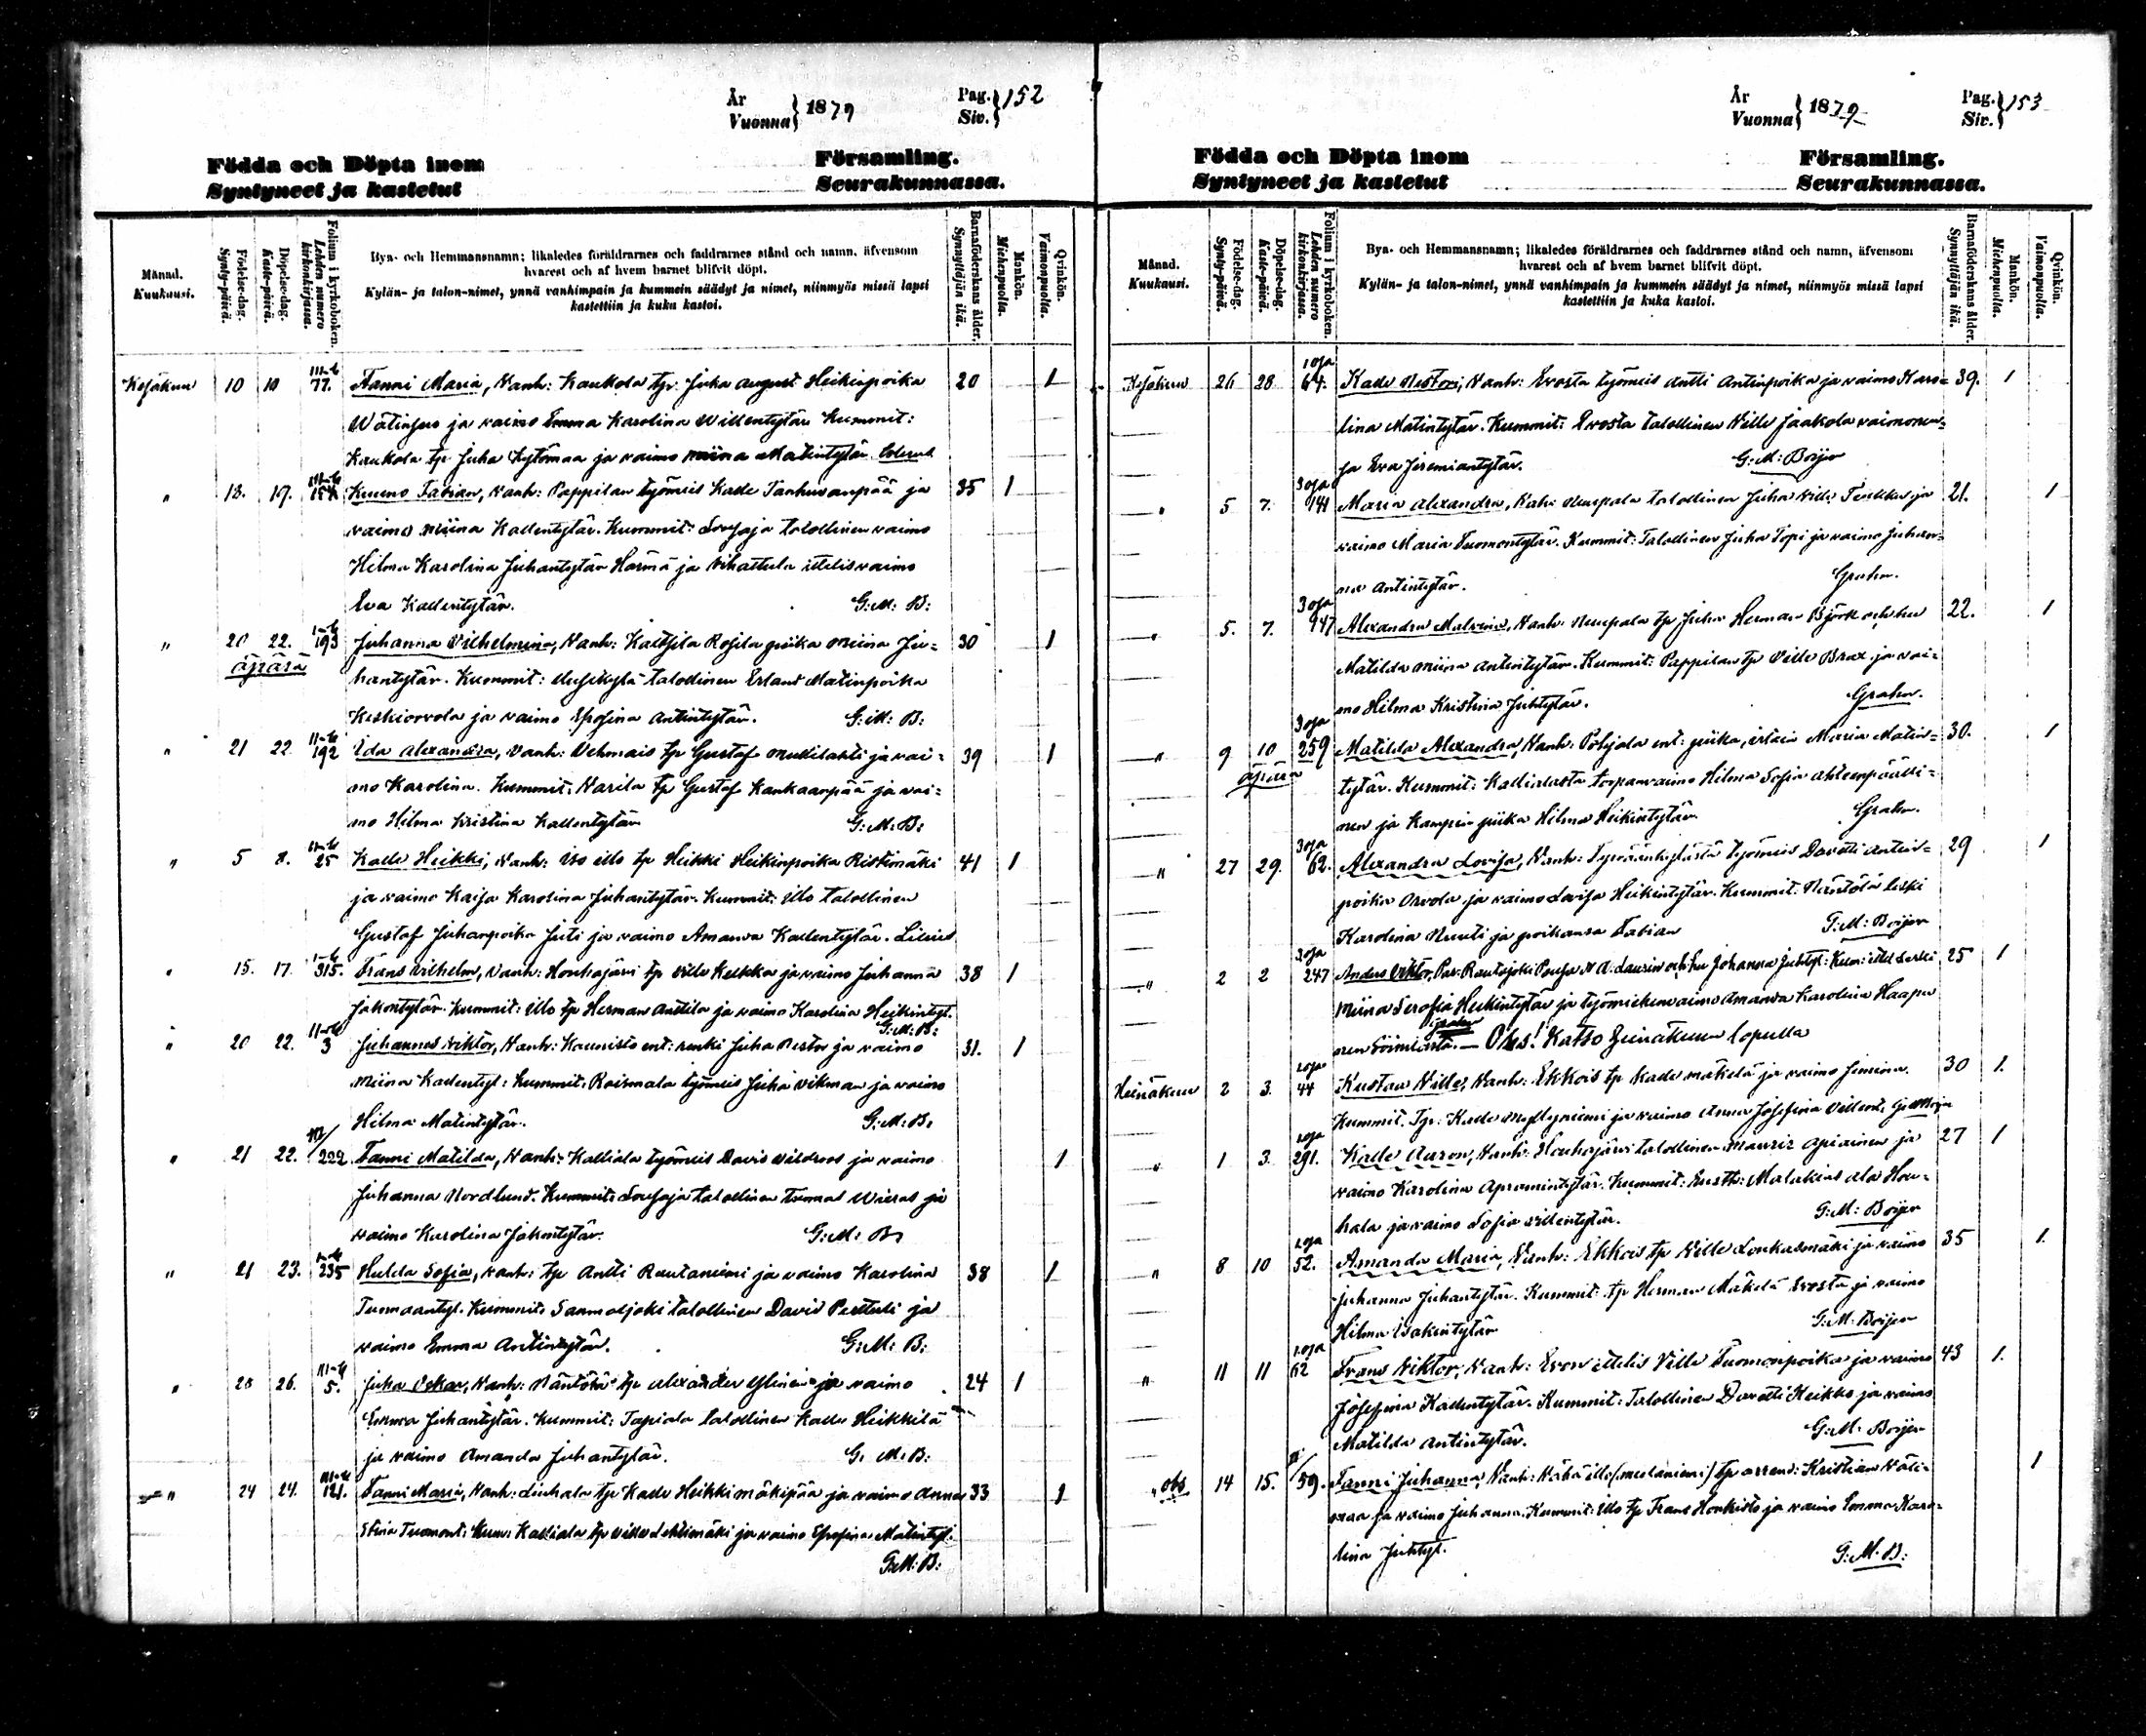 År
Vuonna } 1879
Pag.
Siv. } 152
Födda och Döpta inom Församling.
Syntyneet ja kastetut Seurakunnassa.
Månad.
Kuukausi.
Födelse-dag.
Synty-päivä.
Döpelse-dag.
Kaste-päivä.
Folium i kyrkoboken.
Lehden numero kirkonkirjassa.
Bya- och Hemmansnamn; likaledes föräldrarnes och faddrarnes stånd och namn, äfvensom
hvarest och af hvem barnet blifvit döpt.
Kylän- ja talon-nimet, ynnä vanhimpain ja kummein säädyt ja nimet, niinmyös missä lapsi
kastettiin ja kuka kastoi.
Barnaföderskans ålder.
Synnyttäjän ikä.
Mankön.
Miehenpuolia.
Qvinkön.
Vaimonpuolia.
Kesäkuu 10 10 77. Fanni Maria, Vanh: Kaukola tp. Juha August Heikinpoika 20 1
ja vaimo Emma Karolina Willentytär Kummit:
Kaukola tp Juha Kytömaa ja vaimo Miina Matintytär
" 13. 17. Kuuno Fabian, Vanh: Pappilan työmies Kalle Tanhuanpää ja 35 1
vaimo Miina Kallentytär. Kummit: talollinen vaimo
Hilma Karolina Juhantytär Härmä ja ittelisvaimo
Eva Kallentytär. G:M: B:
" 20 22. 193 Juhanna Vilhelmina, Vanh: piika Miina Ju= 30 1
äpärä
hantytär. Kummit: talollinen Erland Matinpoika
Keskiorvola ja vaimo Antintytär. G:M: B:
" 21 22 192 Ida Alexandra, Vanh: Vehmais tp Gustaf ja vai= 39 1
mo Karolina. Kummit: tp Gustaf Kankaanpää ja vai=
mo Hilma Kristina Kallentytär G:M:B:
" 5 8. 25 Kalle Heikki, Vanh: Iso tp Heikki Heikinpoika Ristimäki 41 1
ja vaimo Kaisa Karolina Juhantytär. Kummit: Illo talollinen
Gustaf Juhanpoika ja vaimo Amanda Kallentytär.
" 15. 17. 315. Frans Vilhelm, Vanh: Houhajärvi tp Ville ja vaimo Juhanna 38 1
Jakontytär. Kummit: Illo tp Herman Anttila ja vaimo Karolina Heikintyt.
G:M:B:
" 20 22. 3 Juhannes Viktor, Vanh: renki Juha Nestor ja vaimo 31. 1
Miina Kallentyt: Kummit: Roismala työmies Juha Vikman ja vaimo
Hilma Matintytär. G:M:B:
" 21 22. 222 Fanni Matilda, Vanh: Kalliala työmies David ja vaimo 1
Juhanna Nordlund. Kummit: talollinen Tuomas ja
vaimo Karolina Jakontytär. G:M: B:
" 21 23. 235 Hulda Sofia, Vanh: tp Antti Rautaniemi ja vaimo Karolina 38 1
Tuomaantyt. Kummit: Sammaljoki talollinen David Perttuli ja
vaimo Emma Antintytär. G:M: B:
" 26. 5. Juha Oskar, Vanh: tp Alexander Ylinen ja vaimo 24 1
Emma Juhantytär. Kummit: Tapiola talollinen Kalle Heikkilä
ja vaimo Amanda Juhantytär. G. M: B:
" 24 24. 121. Fanni Maria, Vanh: Liuhala tp Kalle Heikki mäkipää ja vaimo Anna 33 1
Stina Tuomont: Kum: Kalliala tp Ville Lehtimäki ja vaimo Matintyt.
G:M: B:
År
Vuonna } 1879
Pag.
Siv. } 153
Födda och Döpta inom Församling.
Syntyneet ja kastetut Seurakunnassa.
Månad.
Kuukausi.
Födelse-dag.
Synty-päivä.
Döpelse-dag.
Kaste-päivä.
Folium i kyrkoboken.
Lehden numero kirkonkirjassa.
Bya- och Hemmansnamn; likaledes föräldrarnes och faddrarnes stånd och namn, äfvensom
hvarest och af hvem barnet blifvit döpt.
Kylän- ja talon-nimet, ynnä vanhimpain ja kummein säädyt ja nimet, niinmyös missä lapsi
kastettiin ja kuka kastoi.
Barnaföderskans ålder.
Synnyttäjän ikä.
Mankön.
Miehenpuolia.
Qvinkön.
Vaimonpuolia.
Kesäkuu 26 28 64. Kalle Nestori, Vanh: Evosta työmies Antti Antinpoika ja vaimo Karo= 39. 1
lina Matintytär. Kummit: Evosta talollinen Ville Jaakola vaimonen=
sa Eva Jeremiantytär. G:M: Boijer
" 5 7. 141 Maria Alexandra, talollinen Juha Ville ja 21. 1
vaimo Maria Tuomontytär. Kummit: Talollinen Juha Topi ja vaimo Juhan=
na Antintytär. Grahn.
" 5. 7. Alexandra Malvina, Vanh: tp Juha Herman Björk och hu 22. 1
Matilda Miina Antintytär. Kummit: Pappilan tp Ville Brax ja vai=
mo Hilma Kristina Juhtytär. Grahn.
" 9 10 259 Matilda Alexandra, Vanh: Pohjola ent: piika, Maria Matin= 30. 1
äpärä
tytär. Kummit: Kallialasta torparvaimo Hilma Sofia
nen ja piika Hilma Heikintytär Grahn.
" 27 29. 62. Alexandra Lovisa, Vanh: työmies Davetti Antin= 29 1
poika Orvola ja vaimo Lovisa Heikintytär. Kummit: leski
Karolina Nuuti ja poikansa Fabian G:M: Boijer
" 2 2 247 Anders Viktor, Par: Rautajoki N A: Laurin och hu Johanna Juhtyt: Kum: leski 25 1
Miina Serafia Heikintytär ja työmiehenvaimo Amanda Karolina Haapa
nen Grahn — Obs! Katso Heinäkuun lopulla
Heinäkuu 2 3. 44 Kustaa Ville, Vanh: Ekkois tp Kalle mäkelä ja vaimo 30 1.
Kummit. Tp: Kalle ja vaimo Anna Josefina Villent. G:M Boijer
" 1 3. 291. Kalle Auron, Vanh: Houhajärvi talollinen Mauriz Apiainen ja 27 1
vaimo Karolina Apramintytär. Kummit: Malakias Ala Hou=
hala ja vaimo Sofia Villentytär. G:M: Boijer
" 8 10 52. Amanda Maria, Vanh: Ekkois tp Ville Loukasmäki ja vaimo 35 1.
Juhanna Juhantytär. Kummit: tp Herman Mäkelä Evosta ja vaimo
Hilma Isakintytär G:M: Boijer
" 11 11 62 Frans Viktor, Vanh: Evon ittelis Ville Tuomonpoika ja vaimo 43 1.
Josefina Kallentytär. Kummit: Talollinen Davetti Heikko ja vaimo
Matilda Antintytär. G:M: Boijer
" obs 14 15. 59. Fanni Juhanna, Vanh: tp arrend: Kristian 1
maa ja vaimo Juhanna. Kummit: Illo tp Frans Honkisto ja vaimo Emma Karo=
lina Juhtyt. G:M: B: